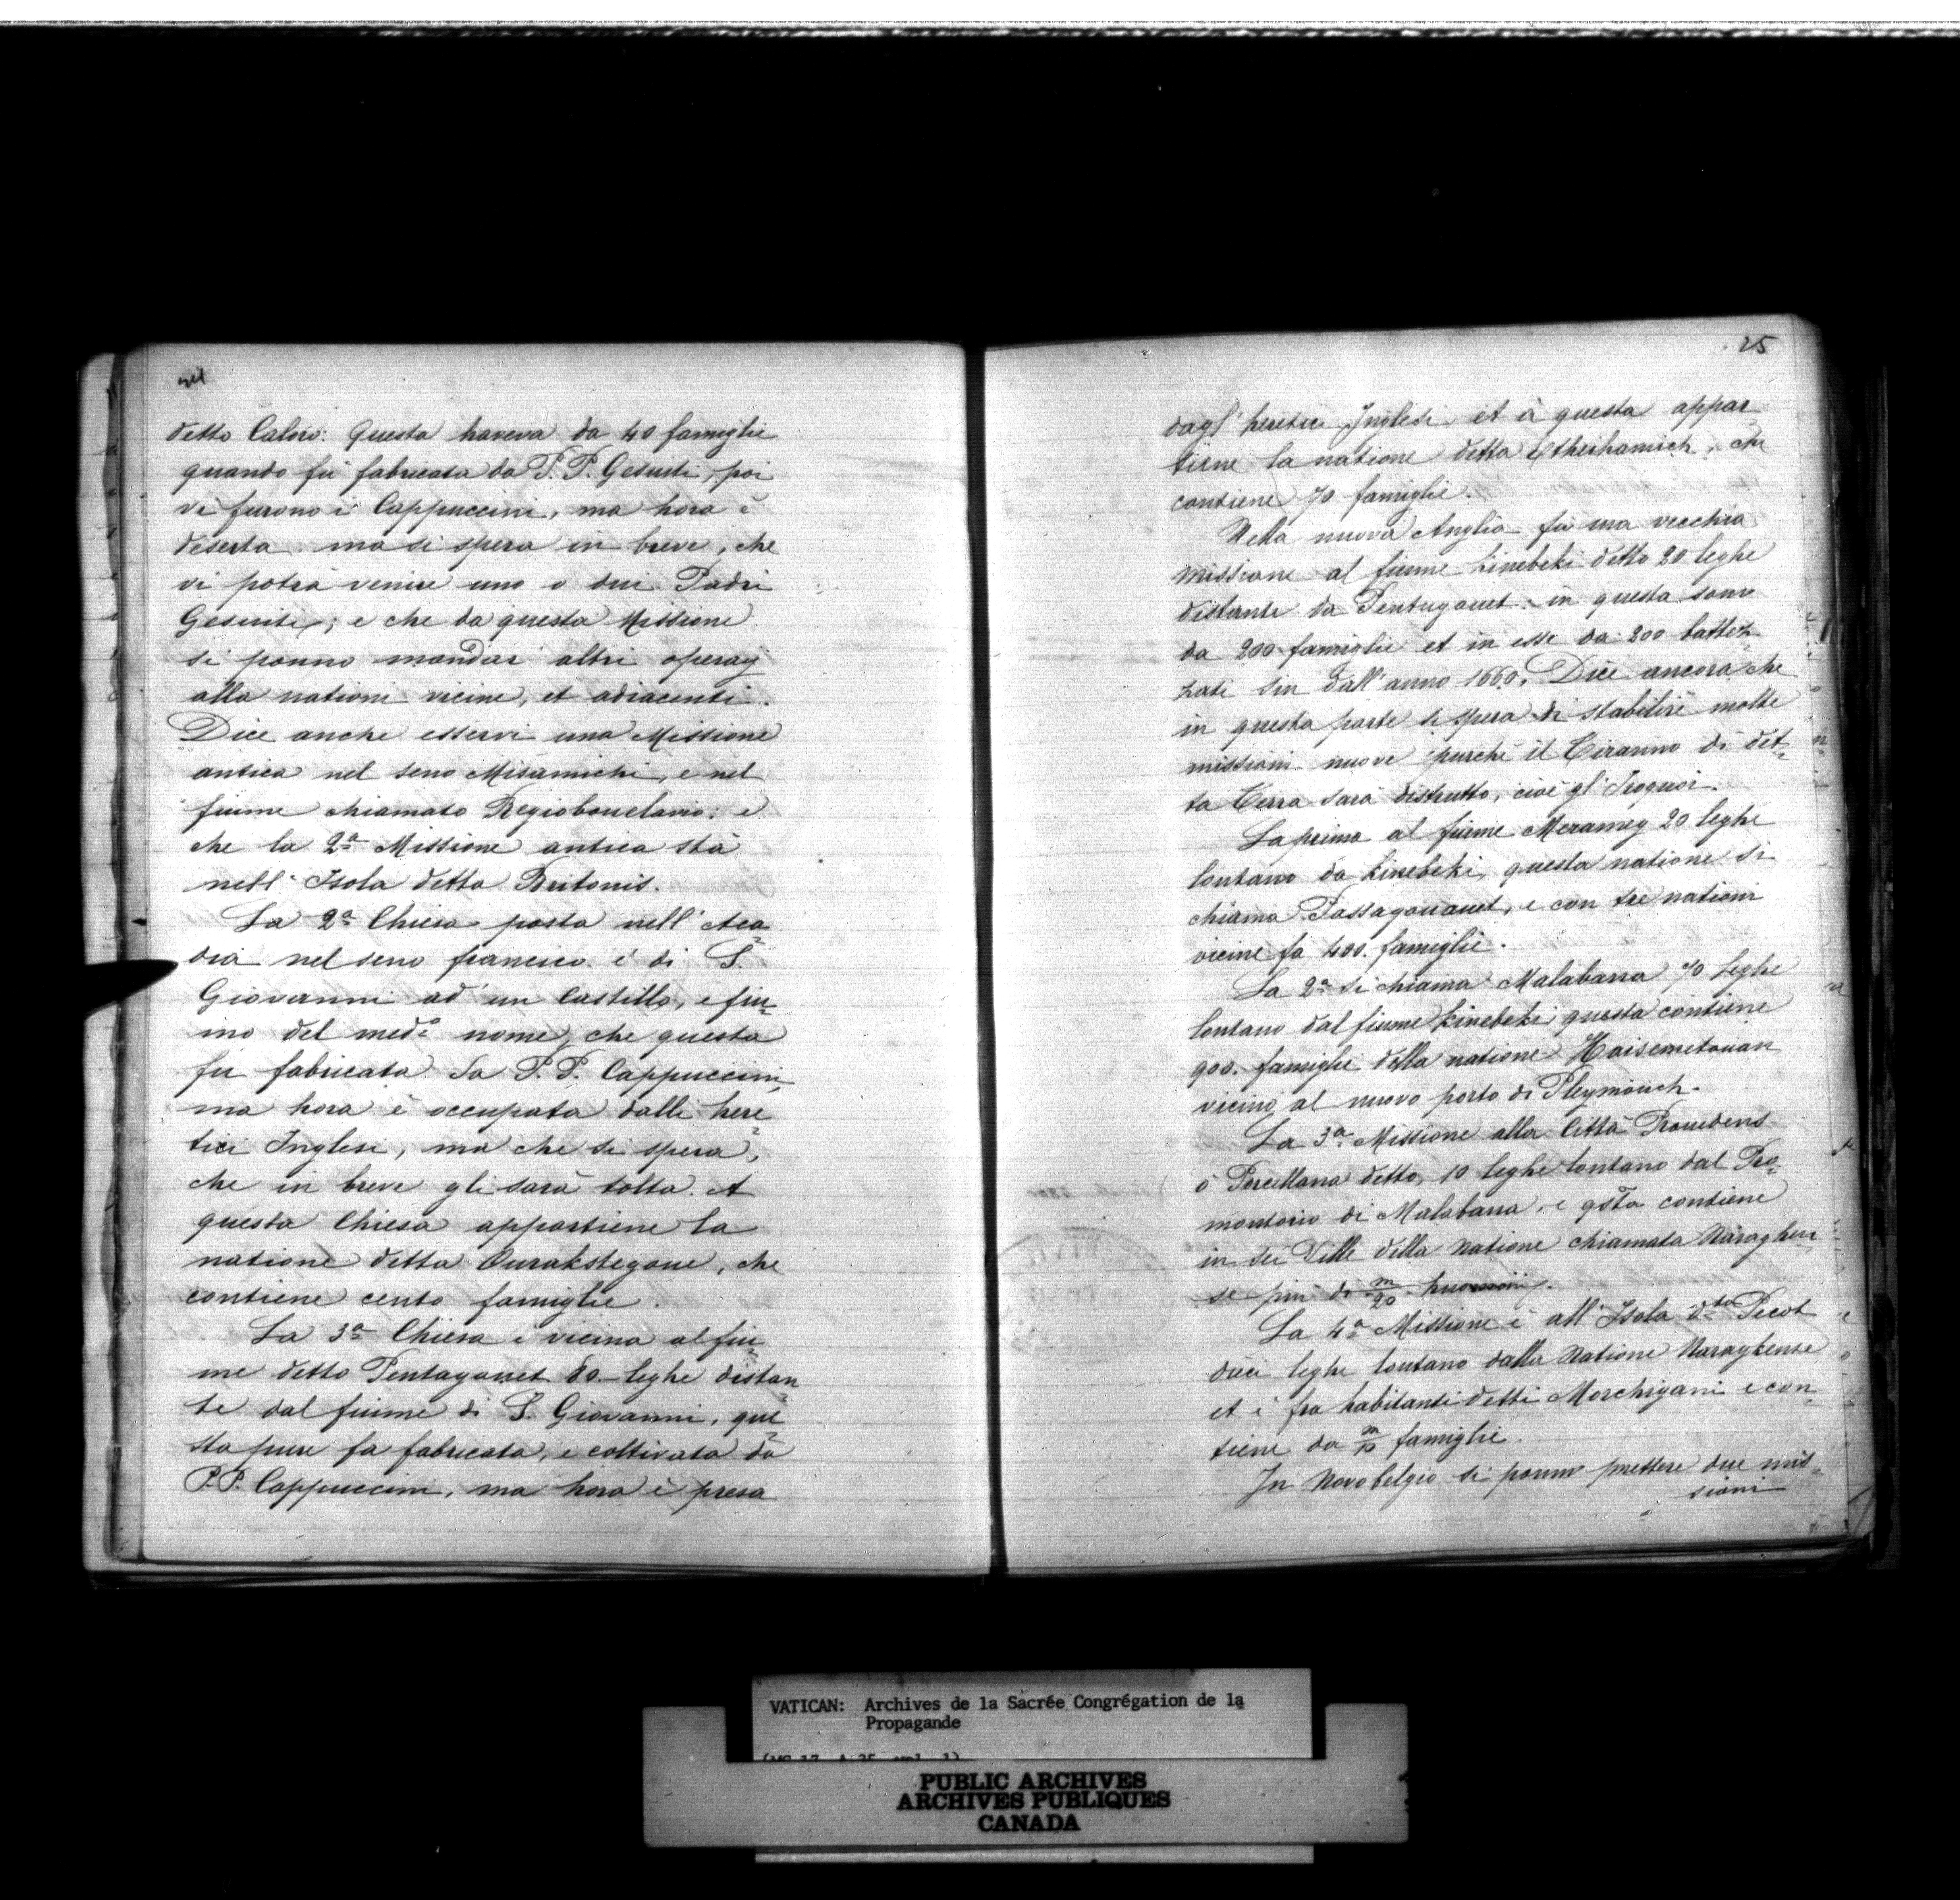 detto Calvo: Questa haveva da 40 famiglie
quando fù fabricata da P. P. Gesuiti, poi
vi furono i Cappuccini, ma hora è
deserta: ma si spera in breve, che
vi potrà venire uno o dui Padri
Gesuiti; e che da questa Missione
si ponno mandar altri operaij
alla nationi vicine, et adiacenti.
Dice anche esservi una Missione
antica nel seno Misamichi, e nel
fiume chiamato Regiobouclavio: e
che la 2ª Missione antica stà
nell' Isola detta Britonis.
La 2ª Chiesa posta nell' Aca
dia nel seno francico è di S.
Giovanni ad un Castillo, e fiu
mo del med.º nome, che questa
fu fabricata da P. P. Cappuccini
ma hora è occupata dalli here
tici Inglesi, ma che si spera,
che in breve gli sarà tolta. A
questa Chiesa appartiene la
natione detta Ourakstegoue, che
contiene cento famiglie.
La 3ª Chiesa è vicina al fiu
me detto Pentagouet 80 leghe distan
te dal fiume di S. Giovanni, que
sta pure fa fabricata, e coltivata da
P. P. Cappuccini, ma hora è presa
25
dagl' heretici Inglesi, et à questa appar
tiene la natione detta Etheihamich, che
contiene 70 famiglie.
Nella nuova Anglia fù una vecchia
missione al fiume Kinebeki detto 20 leghe
distante da Pentugouet: in questa sono
da 200 famiglie et in esse da 200 battez
zati sin dall' anno 1660. Dice ancora che
in questa parte si spera di stabilire molte
missioni nuove purché il Tiranno di det
ta Terra sarà distrutto, cioè gl' Iroquoi.
La prima al fiume Meramey 20 leghe
lontano da Kinebeki, questa natione si
chiama Passagouanet, e con tre nationi
vicine fa 400. famiglie.
La 2ª si chiama Malabarra 70 leghe
lontano dal fiume Kinebeki, questa contiene
900. famiglie della natione Haisemetouan
vicino al nuovo porto di Pleymouch.
La 3ª Missione alla Città Prouedens
ò Porcellana detto, 10 leghe lontano dal Pro
montorio di Malabarra, e qsta contiene
in sei Ville della natione chiamata Naraghen
se più di m/20 huomini.
La 4ª Missione è all' Isola dta Pecot
dieci leghe lontano dalla Natione Naraghense
et è fra habitanti detti Morchigani e con
tiene da m/10 famiglie.
In Novobelgio si ponno mettere due mis
sioni
VATICAN: Archives de la Sacrée Congrégation de la
Propagande
PUBLIC ARCHIVES
ARCHIVES PUBLIQUES
CANADA